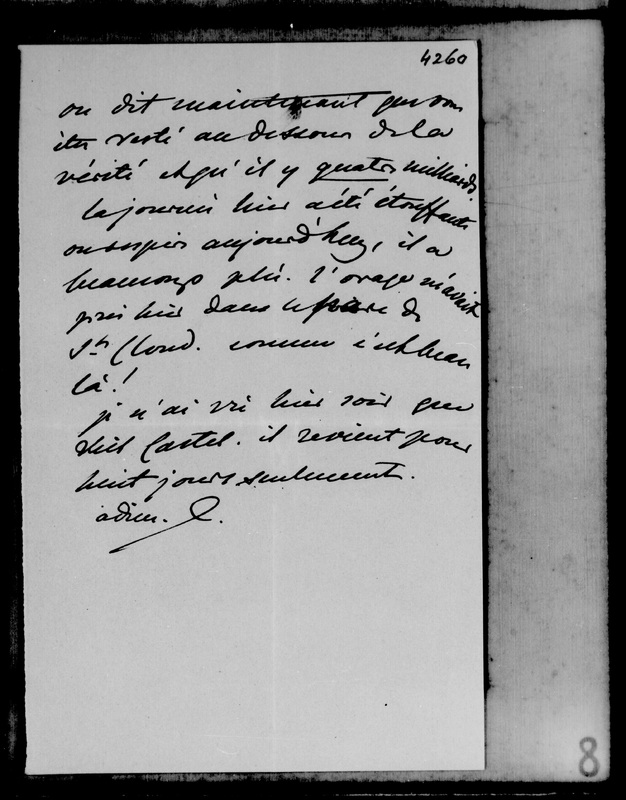 4260
on dit maintenant que vous
êtes resté au dessous de la
vérité et qu'il y quatre milliards.
la journée hier a été étouffante
on respire aujourd'huy, il a
beaucoup plu. l'orage m'avait
pris hier dans le parc de
St Cloud. comme c'est beau
là!
je n'ai vu hier soir que
Castel. il revient pour
huit jours seulement.
adieu.
8